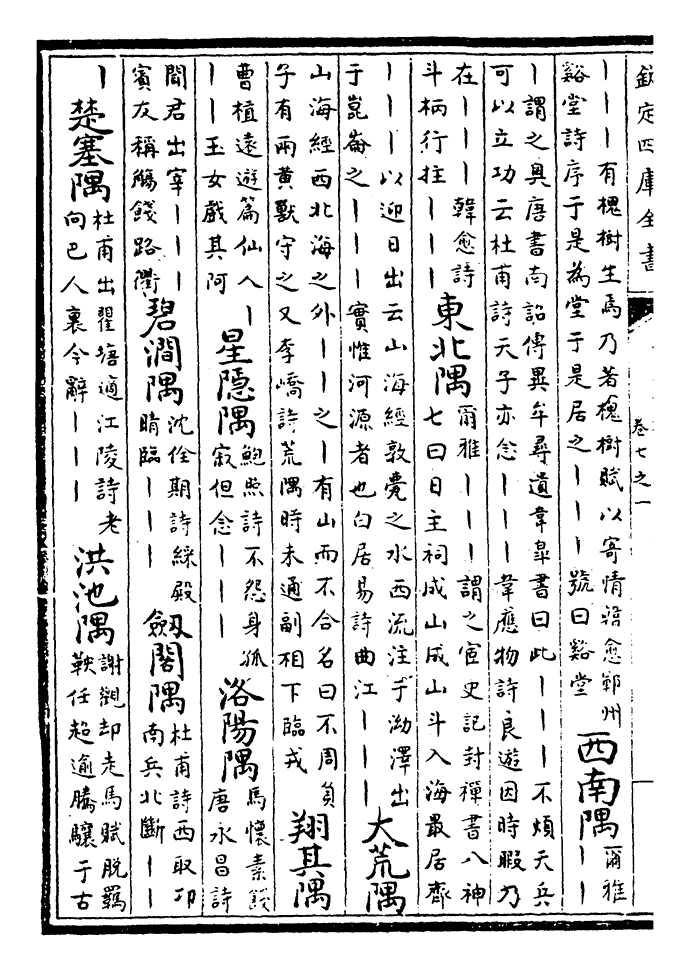 欽定四庫全書
卷七之一
丨丨丨有槐樹生焉乃著槐樹賦以寄情韓愈鄆州
谿堂詩序于是為堂于是居之丨丨丨號曰谿堂
西南隅
爾雅
丨丨
丨謂之奥唐書南詔傳異牟尋遺韋臯書曰此丨丨丨不煩天兵
可以立功云杜甫詩天子亦念丨丨丨韋應物詩良遊因時暇乃
在丨丨丨韓愈詩
斗柄行拄丨丨丨
東北隅
爾雅丨丨丨謂之宧史記封禪書八神
七曰日主祠成山成山斗入海最居齊
丨丨丨以迎日出云山海經敦薨之水西流注于泑澤出
于崑崙之丨丨丨實惟河源者也白居易詩曲江丨丨丨
大荒隅
山海經西北海之外丨丨之丨有山而不合名曰不周負
子有兩黄獸守之又李嶠詩荒隅時未通副相下臨戎
翔其隅
曹植遠遊篇仙人丨
丨丨玉女戲其阿
星隠隅
鮑照詩不怨身孤
寂但念丨丨丨
洛陽隅
馬懷素餞
唐永昌詩
聞君出宰丨丨丨
賓友稱觴餞路衢
碧澗隅
沈佺期詩綵殿
晴臨丨丨丨
劔閣隅
杜甫詩西取卭
南兵北斷丨丨
丨
楚塞隅
杜甫出瞿塘適江陵詩老
向巴人裏今辭丨丨丨
洪池隅
謝觀却走馬賦脱羈
鞅任超逾騰驤于古